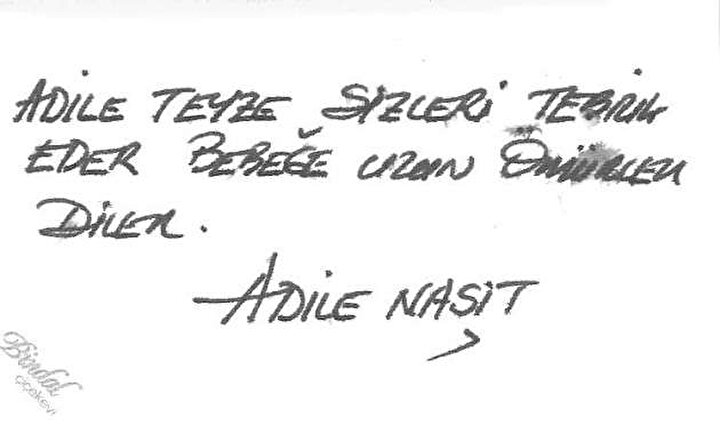 ADİLE TEYZE SİZLERİ TEBRİK
EDER BEBEĞE UZUN ÖMÜRLER
DİLER.
ADİLE NAŞİT
Bindal
ÇİÇEKEVİ